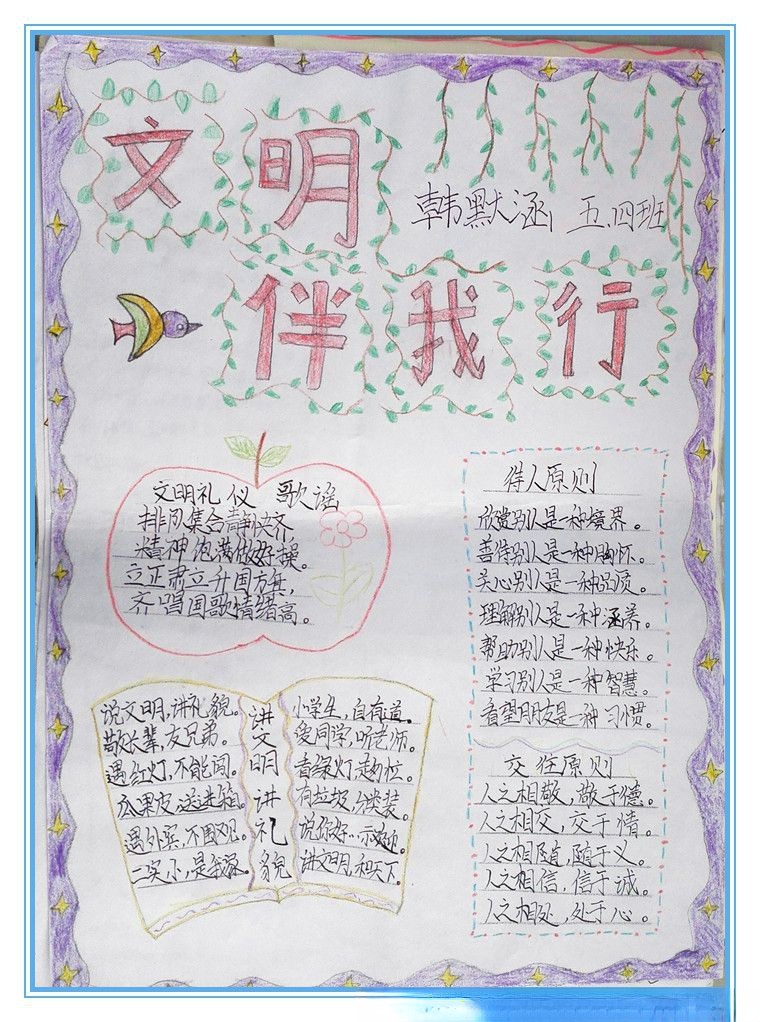 文明
韩默涵 五.四班
伴我行
文明礼仪 歌谣
排队集合静快齐,
精神饱满做好操。
立正肃立升国方兵,
齐唱国歌情绪高。
待人原则
欣赏别人是一种境界。
善待别人是一种胸怀。
关心别人是一种品质。
理解别人是一种涵养。
帮助别人是一种快乐。
学习别人是一种智慧。
看望朋友是一种习惯。
交往原则
人之相敬,敬于德。
人之相交,交于情。
人之相随,随于义。
人之相信,信于诚。
人之相处,处于心。
说文明,讲礼貌。
敬长辈,友兄弟。
遇红灯,不能闯。
瓜果皮,送进箱。
遇外宾,不围观。
二实小,是我家。
讲文明讲礼貌
小学生,自有道。
爱同学,听老师。
看绿灯
有垃圾,装。
说你好
讲文明,和天下。